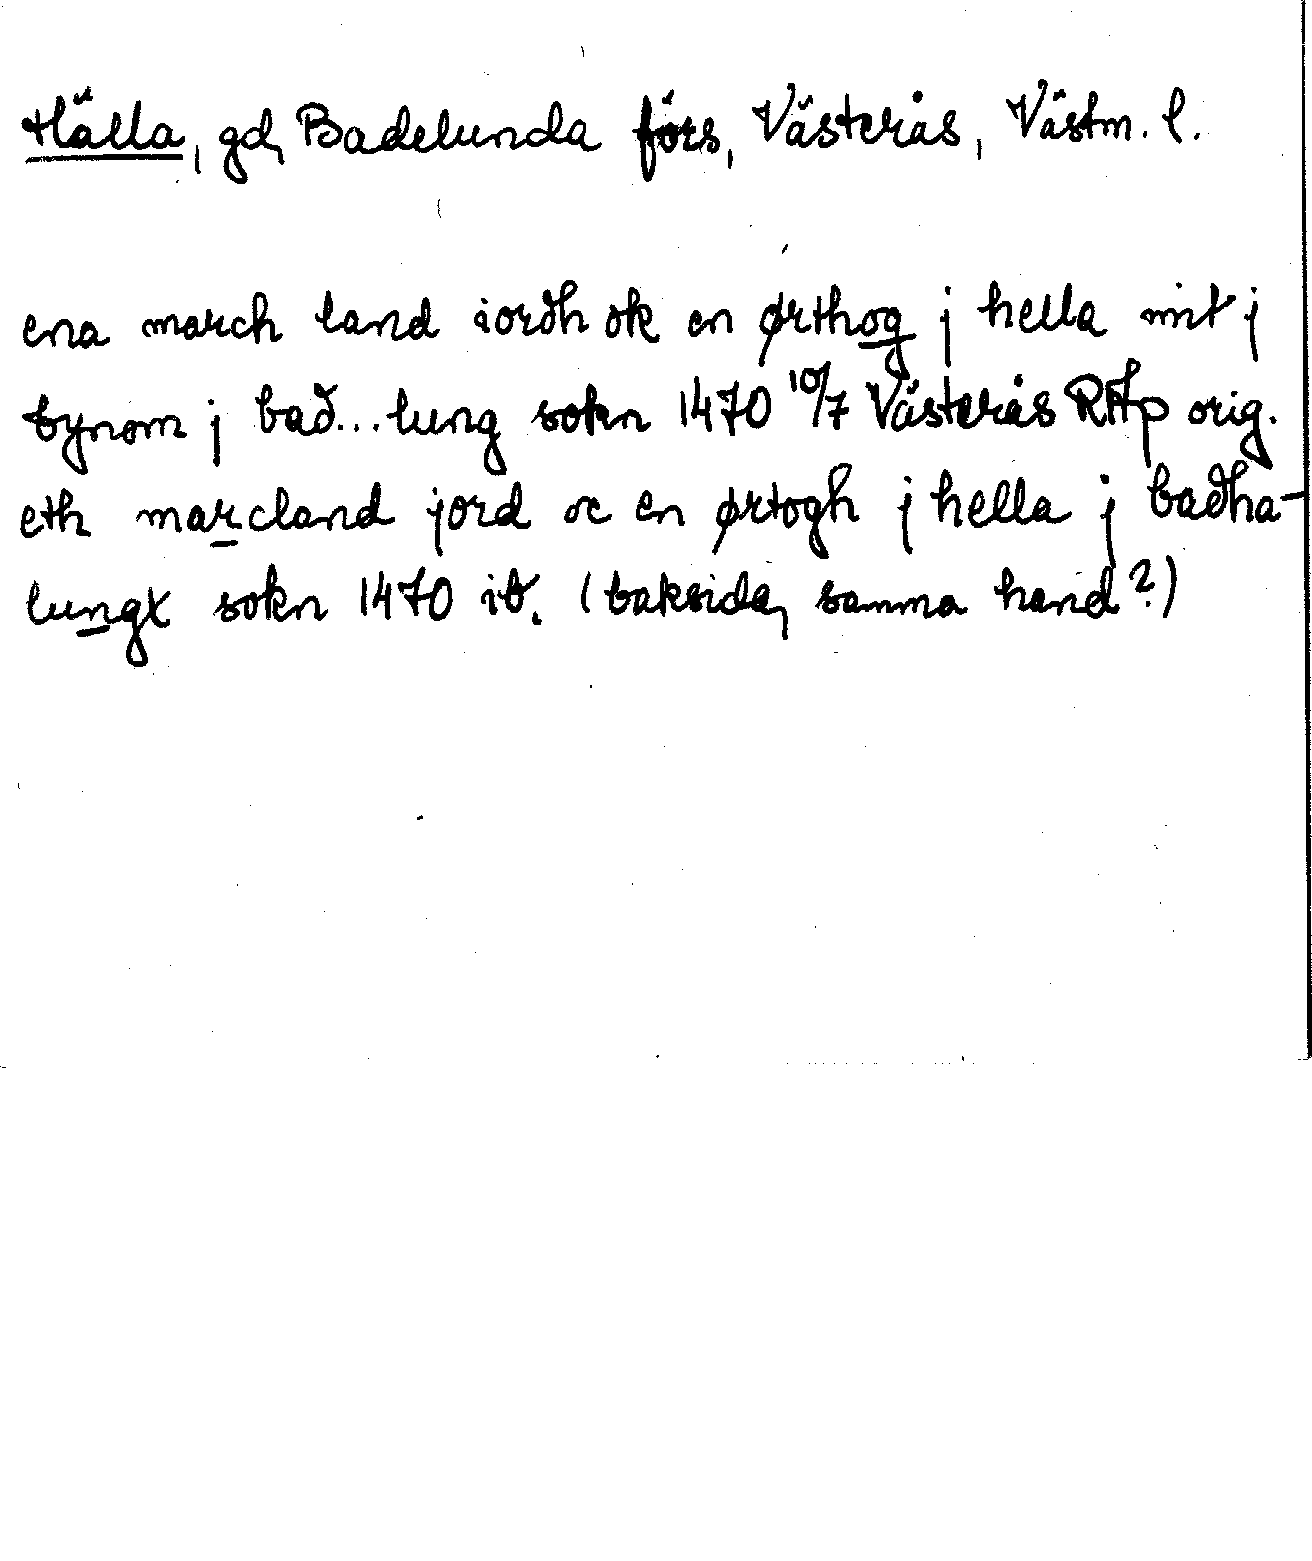 Hälla, gd, Badelunda förs, Västerås, Västm. l.
ena march land iorðh ok en ørthog j hella mit j
bynom j bað...lung sokn 1470 10/7 Västerås RAp orig.
eth marcland jord oc en ørtogh j hella j baðha-
lungx sokn 1470 ib. (baksida, samma hand?)